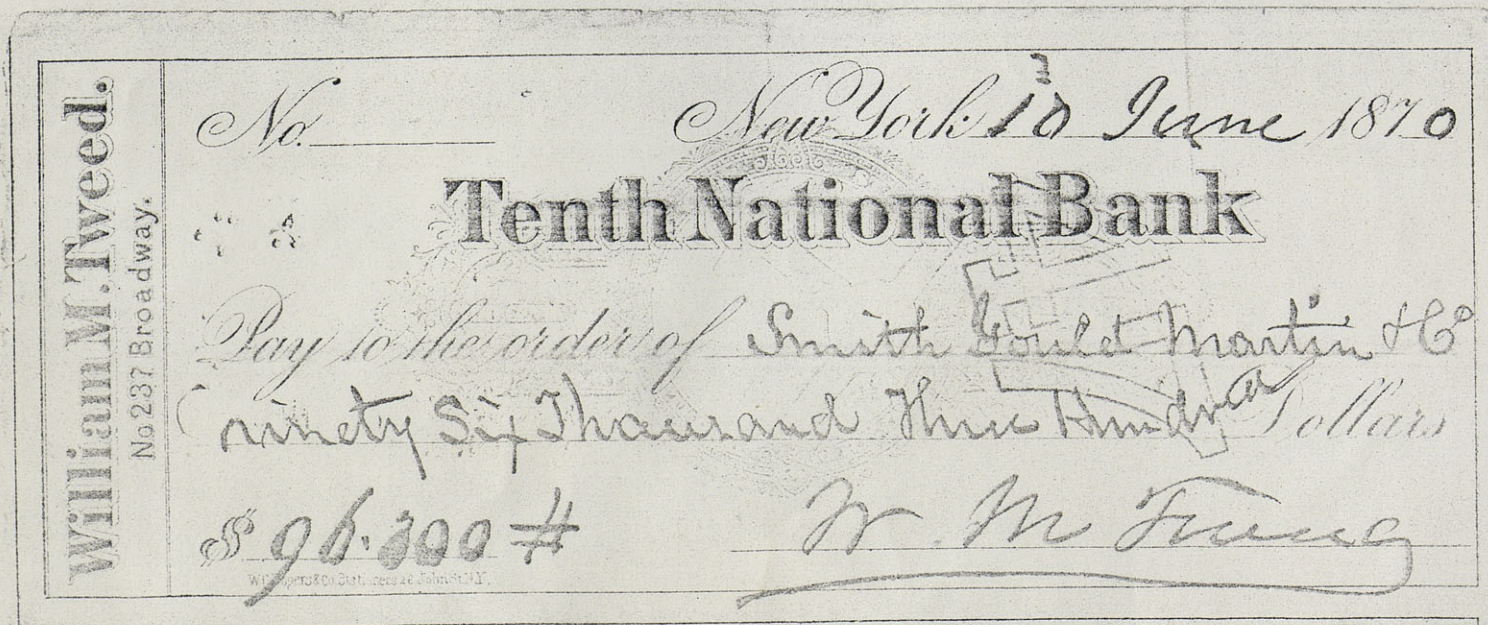 William M. Tweed.
No 237 Broadway.
No.
New York 10 June 1870
Tenth National Bank
Pay to the order of Smith Gould Martin & Co
ninety Six Thousand Three Hundred Dollars
$ 96.300 #
W. M. Tweed
Stationers 28 John St N.Y.